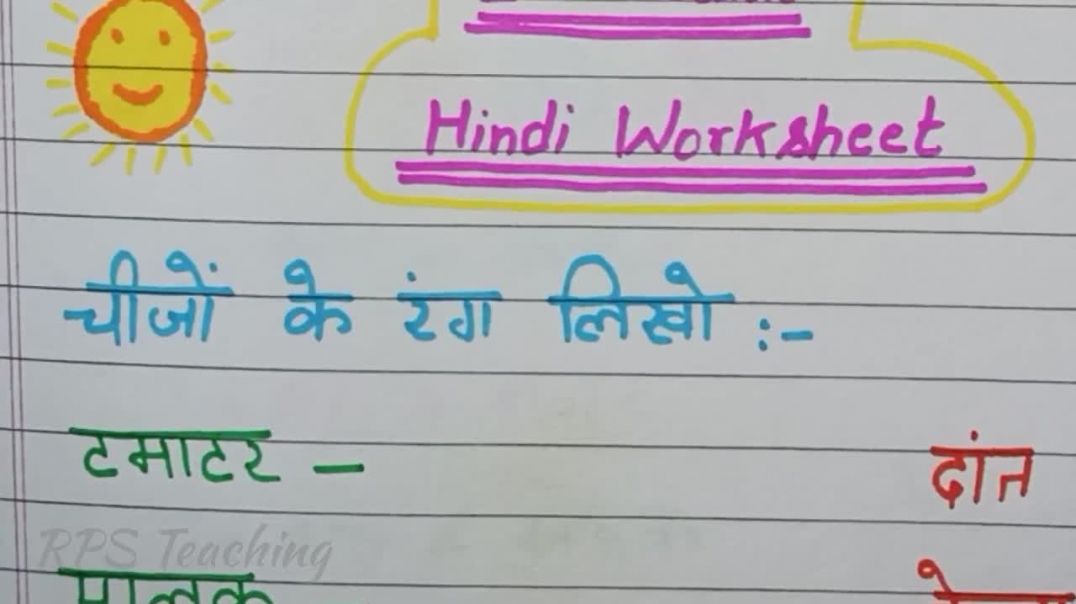 Hindi Worksheet
चीजों के रंग लिखो :-
टमाटर - दांत
RPS Teaching
पालक